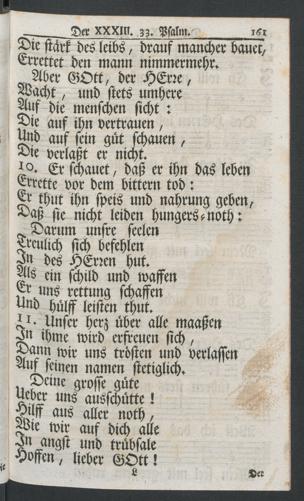 Der XXXIII. 33. Psalm. 161
Die stärk des leibs, drauf mancher bauet,
Errettet den mann nimmermehr.
Aber GOtt, der HErre,
Wacht, und stets umhere
Auf die menschen sicht:
Die auf ihn vertrauen,
Und auf sein güt schauen,
Die verlaßt er nicht.
10. Er schauet, daß er ihn das leben
Errette vor dem bittern tod:
Er thut ihn speis und nahrung geben,
Daß sie nicht leiden hungers-noth:
Darum unsre seelen
Treulich sich befehlen
In des HErren hut.
Als ein schild und waffen
Er uns rettung schaffen
Und hülff leisten thut.
11. Unser herz über alle maaßen
In ihme wird erfreuen sich,
Dann wir uns trösten und verlassen
Auf seinen namen stetiglich.
Deine grosse güte
Ueber uns ausschütte!
Hilff aus aller noth,
Wie wir auf dich alle
In angst und trübsale
Hoffen, lieber GOtt!
L Der